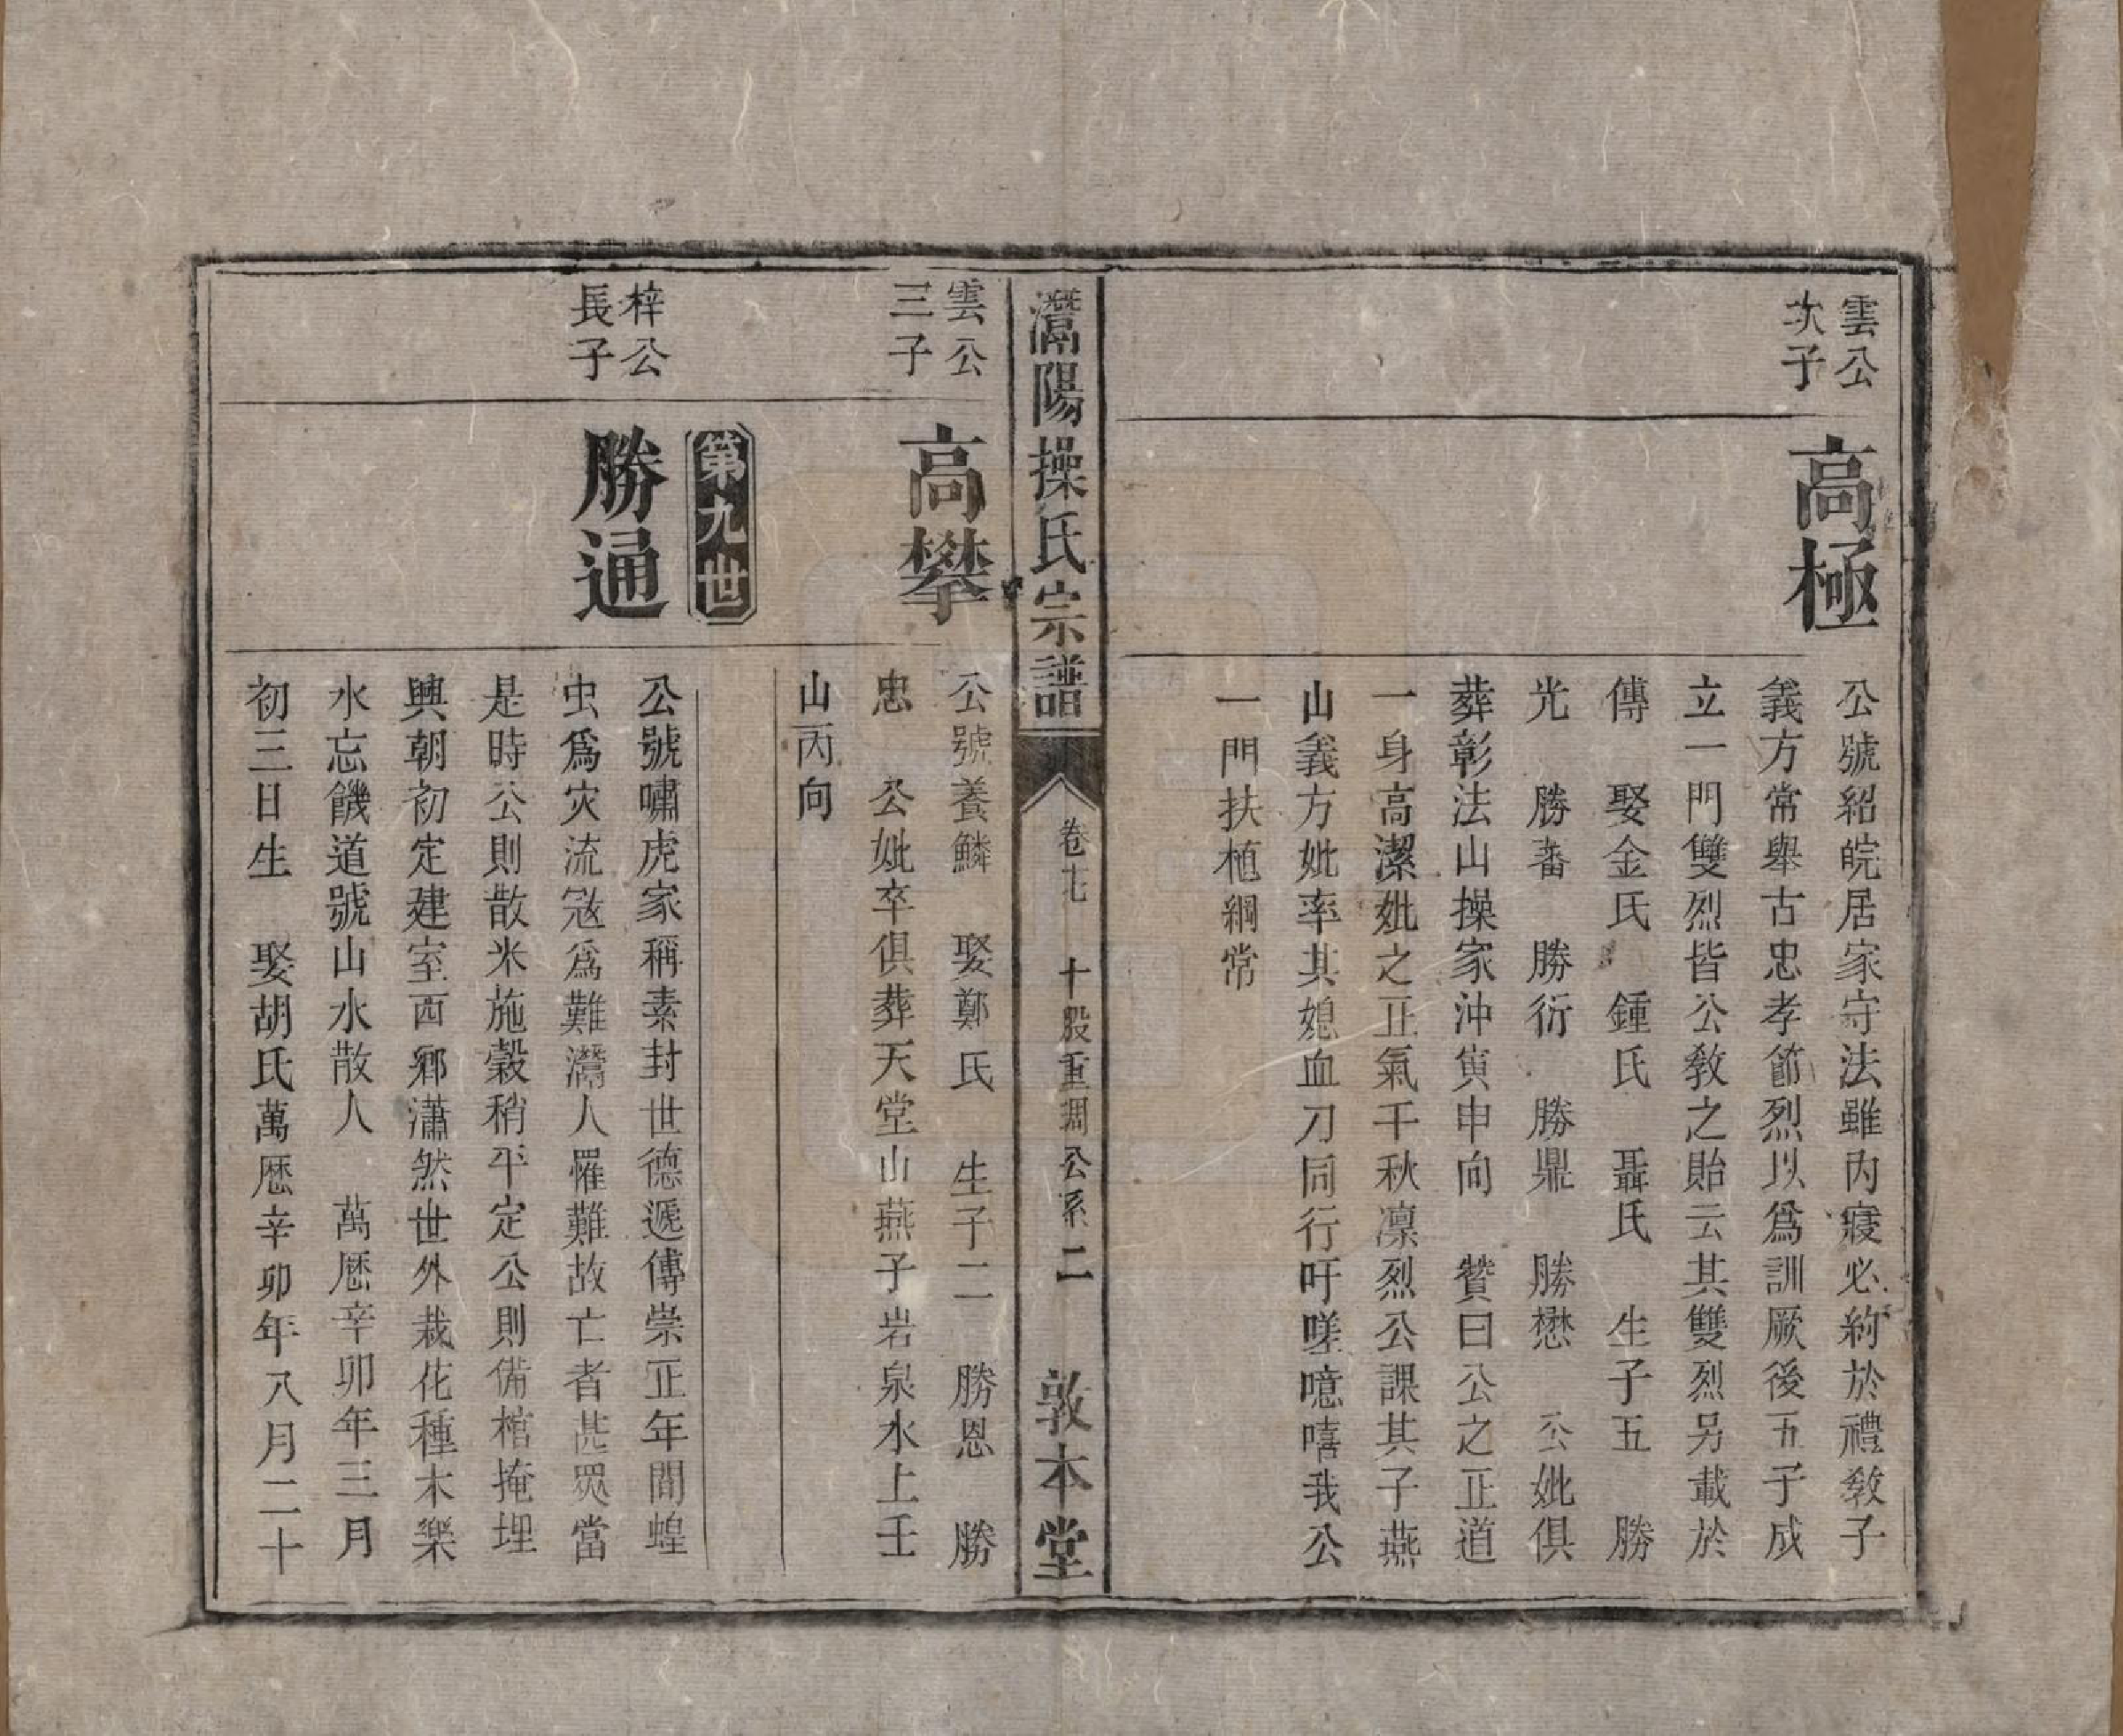 雲公
次子
高極
公號紹皖居家守法雖內寢必約於禮教子
義方常舉古忠孝節烈以爲訓厥後五子成
立一門雙烈皆公敎之貽云其雙烈另載於
傳　娶金氏　鍾氏　聶氏　生子五　勝
光　勝蕃　勝衍　勝鼎　勝懋　公妣俱
葬彰法山操家沖寅申向　贊曰公之正道
一身高潔妣之正氣千秋凛烈公課其子燕
山義方妣率其媳血刀同行吁嗟噫嘻我公
一門扶植綱常
灊陽操氏宗譜
卷七　十股重調公系　二
敦本堂
雲公
三子
高攀
公號養鱗　娶鄭氏　生子二　勝恩　勝
忠　公妣卒俱葬天堂山燕子岩泉水上壬
山丙向
第九世
梓公
長子
勝通
公號嘯虎家稱素封世德遞傳崇正年間蝗
虫爲灾流寇爲難灊人罹難故亡者甚眾當
是時公則散米施穀稍平定公則備棺掩埋
興朝初定建室西鄉瀟然世外栽花種木樂
水忘饑道號山水散人　萬歷辛卯年三月
初三日生　娶胡氏萬歷辛卯年八月二十